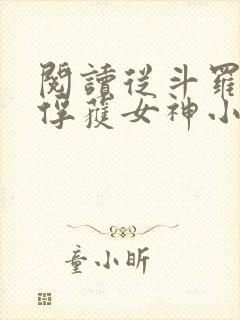 閱讀從斗羅
俘獲女神小
童小昕